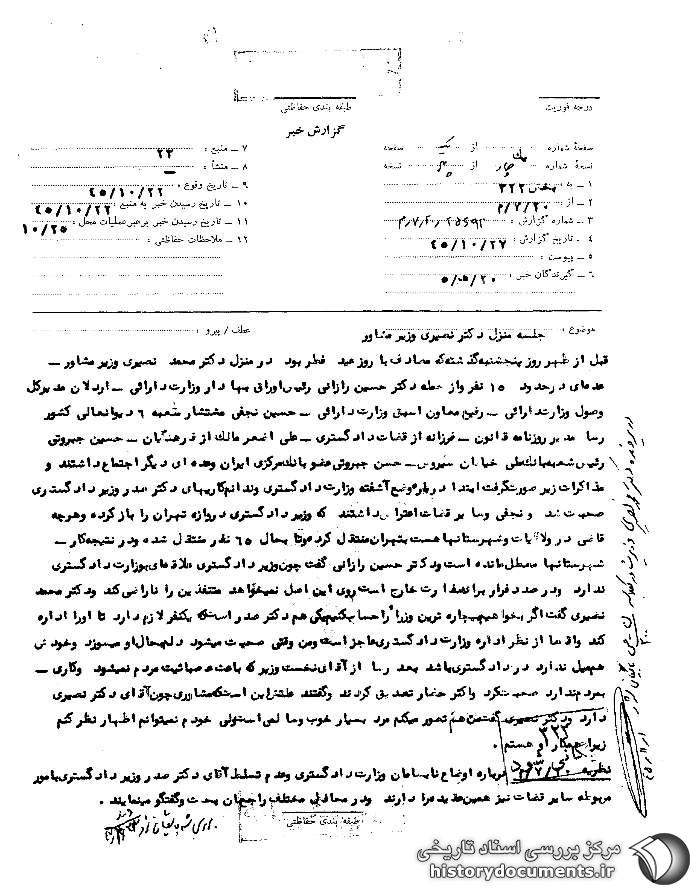 طبقه بندی حفاظتی
درجه فوریت
گزارش خبر
صفحهٔ شماره یک از یک صفحه
نسخهٔ شماره چهار از نسخه
۱ ـ به : بخش ۳۲۲
۲ ـ از : ۲۰/ه۲
۳ ـ شماره گزارش :
۴ ـ تاریخ گزارش : ۴۵/۱۰/۲۷
۵ ـ پیوست :
۶ ـ گیرندگان خبر :
۷ ـ منبع : ۲۳
۸ ـ منشأ : ـ
۹ ـ تاریخ وقوع : ۴۵/۱۰/۲۲
۱۰ ـ تاریخ رسیدن خبر به منبع : ۴۵/۱۰/۲۲
۱۱ ـ تاریخ رسیدن خبر برهبر عملیات محل : ۱۰/۲۵
۱۲ ـ ملاحظات حفاظتی :
موضوع : جلسه منزل دکتر نصیری وزیر مشاور
عطف / پیرو :
قبل از ظهر روز پنجشنبه گذشته که مصادف با روز عید فطر بود در منزل دکتر محمد نصیری وزیر مشاور ـ
عده‌ای در حدود ۱۵ نفر و از جمله دکتر حسین رازانی رئیس اوراق بهادار وزارت دارائی ـ اردلان مدیرکل
وصول وزارت دارائی ـ رفیع معاون اسبق وزارت دارائی ـ حسین نجفی مستشار شعبه ۶ دیوانعالی کشور
رسا مدیر روزنامه قانون ـ فرزانه از قضات دادگستری ـ علی اصغر مالک از فرهنگیان ـ حسین جبروتی
رئیس شعبه بانک ملی خیابان سیروس ـ حسن جبروتی عضو بانک مرکزی ایران وعده‌ای دیگر اجتماع داشتند و
مذاکرات زیر صورت گرفت ابتدا درباره وضع آشفته وزارت دادگستری وندانم کاریهای دکتر صدر وزیر دادگستری
صحبت شد و نجفی وسایر قضات اعتراض داشتند که وزیر دادگستری دروازه تهران را باز کرده وهرچه
قاضی در ولایات وشهرستانها هست بتهران منتقل کرده وتا بحال ۶۵ نفر منتقل شده ودر نتیجه کار ـ
شهرستانها معطل مانده است ودکتر حسین رازانی گفت چون وزیر دادگستری علاقه‌ای بوزارت دادگستری
ندارد ودر صدد فرار برای سفارت خارج است روی این اصل نمیخواهد متنفذین را ناراضی کند ودکتر محمد
نصیری گفت اگر بخواهیم بیچاره ترین وزرا را حساب کنیم یکی هم دکتر صدر است که یکنفر لازم دارد تا اورا اداره
کند واقعا از نظر اداره وزارت دادگستری عاجز است ومن وقتی صحبت میشود دلم بحال او میسوزد وخودش
هم میل ندارد در دادگستری باشد بعد رسا از آقای نخست وزیر که باعث عصبانیت مردم نمیشود وکاری ـ
بمردم ندارد صحبت کرد واکثر حضار تصدیق کردند وگفتند علتش این است که مشاوری چون آقای دکتر نصیری
دارد ودکتر نصیری گفت من هم تصور میکنم مرد بسیار خوب وسالمی است ولی خودم نمیتوانم اظهار نظر کنم
زیرا همکار او هستم .
۳۲۲
نظریه درباره اوضاع نابسامان وزارت دادگستری وعدم تسلط آقای دکتر صدر وزیر دادگستری بامور
مربوطه سایر قضات نیز همین عقیده را دارند ودر محافل مختلف راجع بآن بحث وگفتگو مینمایند .
طبقه بندی حفاظتی
مرکز بررسی اسناد تاریخی
historydocuments.ir